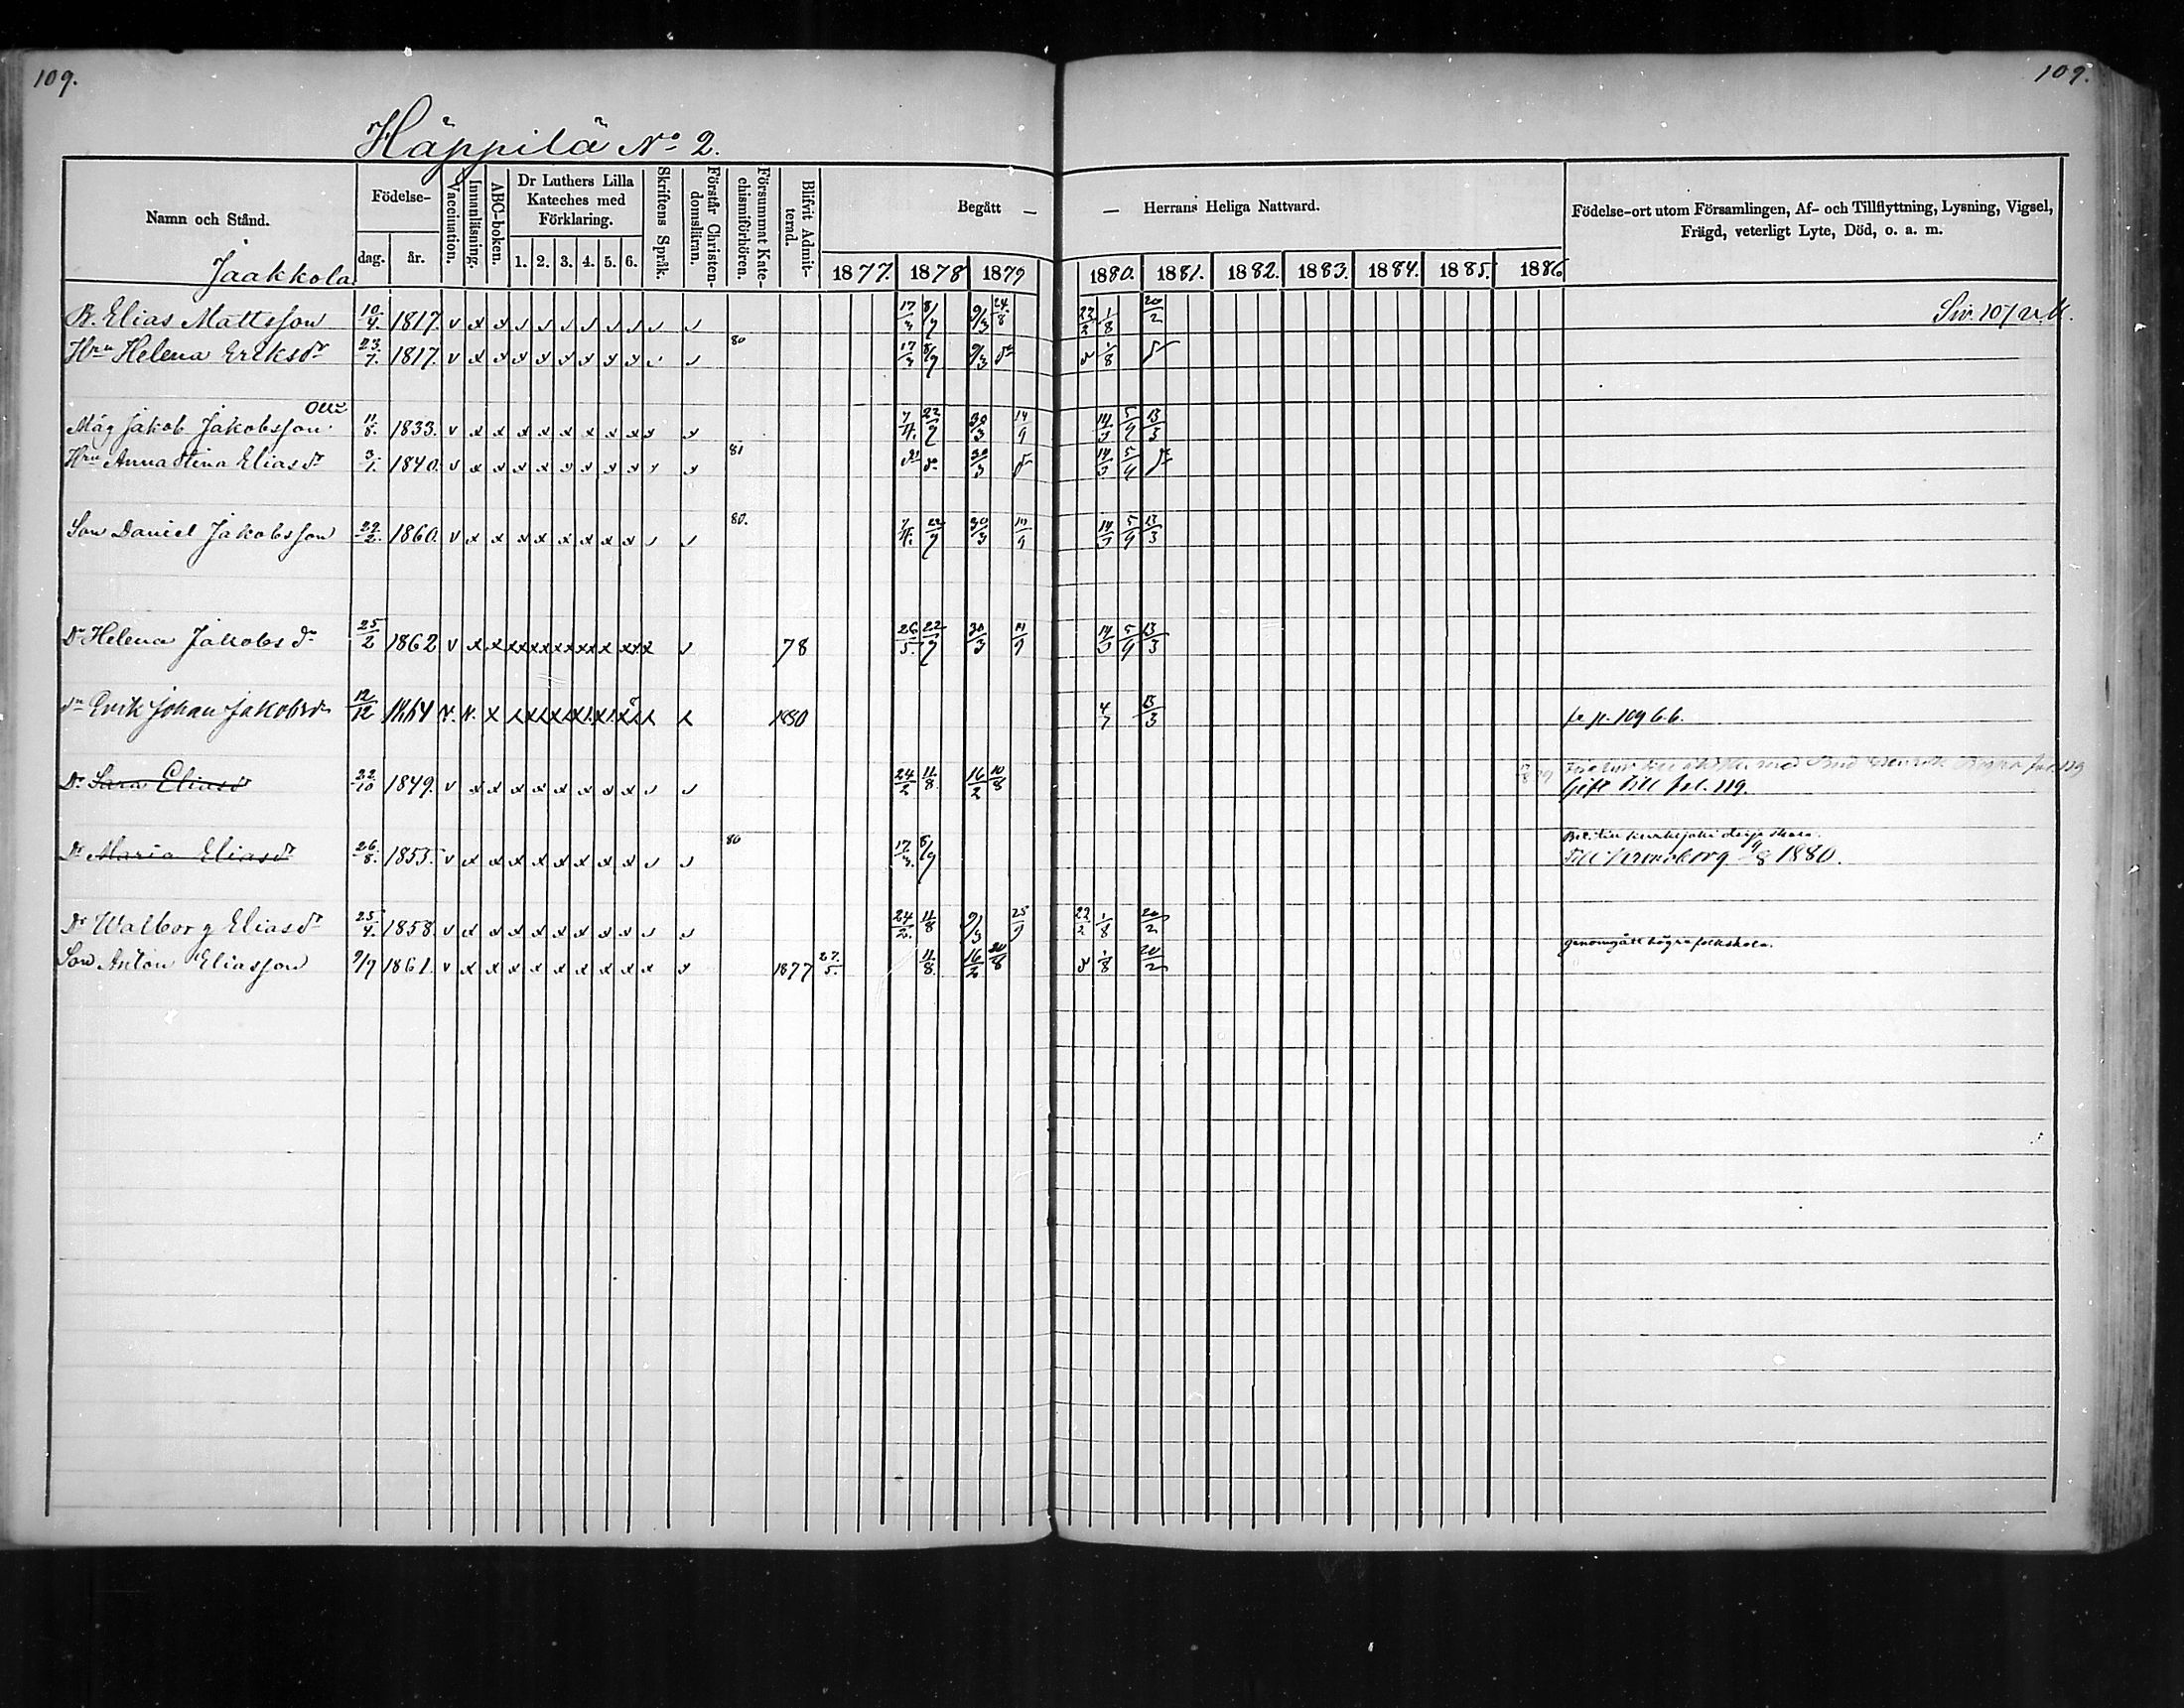 109.
109.
Häppilä No 2.
Namn och Stånd.
Födelse-
dag.
år.
Vaccination.
Innanläsning.
ABC-boken.
Dr Luthers Lilla Kateches med Förklaring.
1. 2. 3. 4. 5. 6.
Skriftens Språk.
Förstår Christen-domsläran.
Försummat Kate-chismiförhören.
Blifvit Admit-terad.
Begått —
— Herrans Heliga Nattvard.
1877. 1878 1879
1880. 1881. 1882. 1883. 1884. 1885. 1886
Födelse-ort utom Församlingen, Af- och Tillflyttning, Lysning, Vigsel,
Frägd, veterligt Lyte, Död, o. a. m.
Jaakkola
B. Elias Mattsson 10/4 1817. v x 17/3 8/9 9/3 24/8 22/2 1/8 20/2
Hru Helena Eriksdr 23/7. 1817. v x 80 17/3 8/9 9/3 1/8
Måg Jakob Jakobsson 11/8. 1833. v x 7/4. 22/9 30/3 14/9 14/3 5/9 13/3
Hru Anna Stina Eliasdr 3/1. 1840. v x 81 30/3 14/3 5/9
Son Daniel Jakobsson 29/2. 1860. v x x 80. 7/4. 22/9 30/3 14/9 14/3 5/9 13/3
Dr Helena Jakobsdr 25/2 1862 v x 78 26/5. 22/9 30/3 14/9 14/3 5/9 13/3
Erik Johan Jakobs 12/12 1864 v. x 1880 4/7 13/3 p. 109 b.b.
Dr Sara Eliasdr 22/10 1849. v x 24/2 11/8. 16/2 10/8
Gift till fol. 119.
Dr Maria Eliasdr 26/8. 1855. v x 80 17/3. 8/9
Till Kronoborg 9/8 1880.
Dr Walborg Eliasdr 25/4. 1858. v x 24/2. 11/8 9/3 25/9 22/2 1/8 20/2
genomgått högre folkskola.
Son Anton Eliasson 9/9 1861. v x 1877 27/5. 11/8. 16/2 1/8 20/2